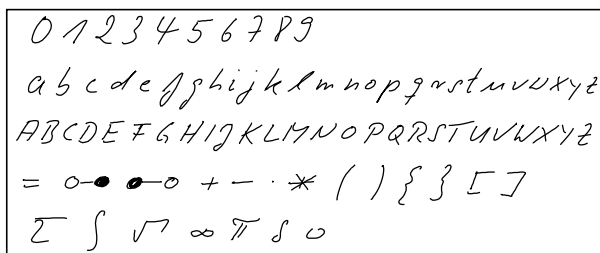 0 1 2 3 4 5 6 7 8 9
a b c d e f g h i j k l m n o p q r s t u v w x y z
A B C D E F G H I J K L M N O P Q R S T U V W X Y Z
= ⊶ ⊷ + - · * ( ) { } [ ]
Σ ∫ √ ∞ π δ o